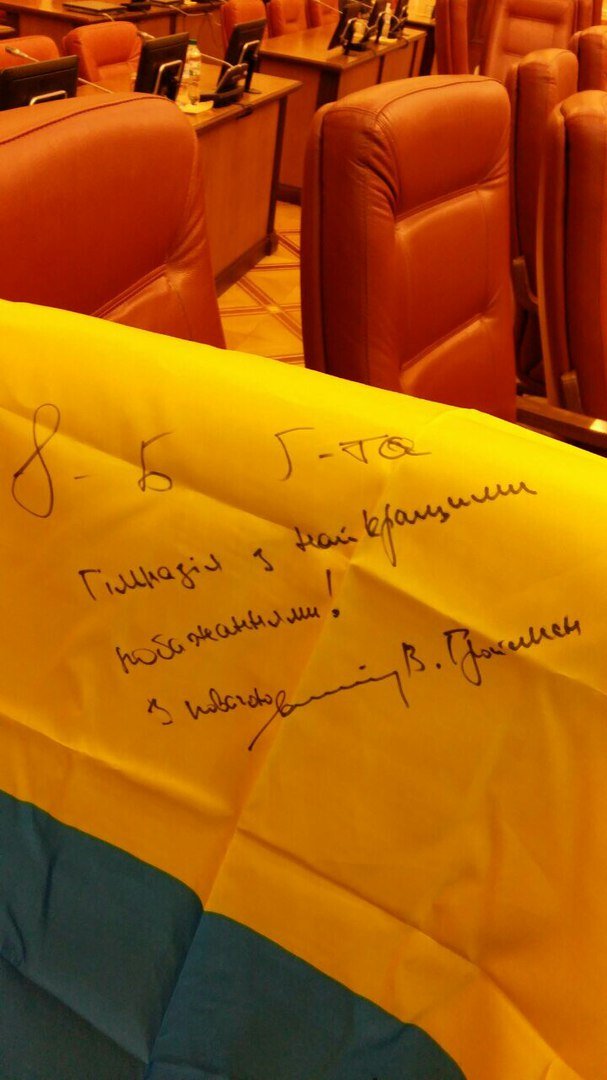 8-Б Г-та
Гімназія з найкращими
побажаннями!
З повагою В. Гройсман